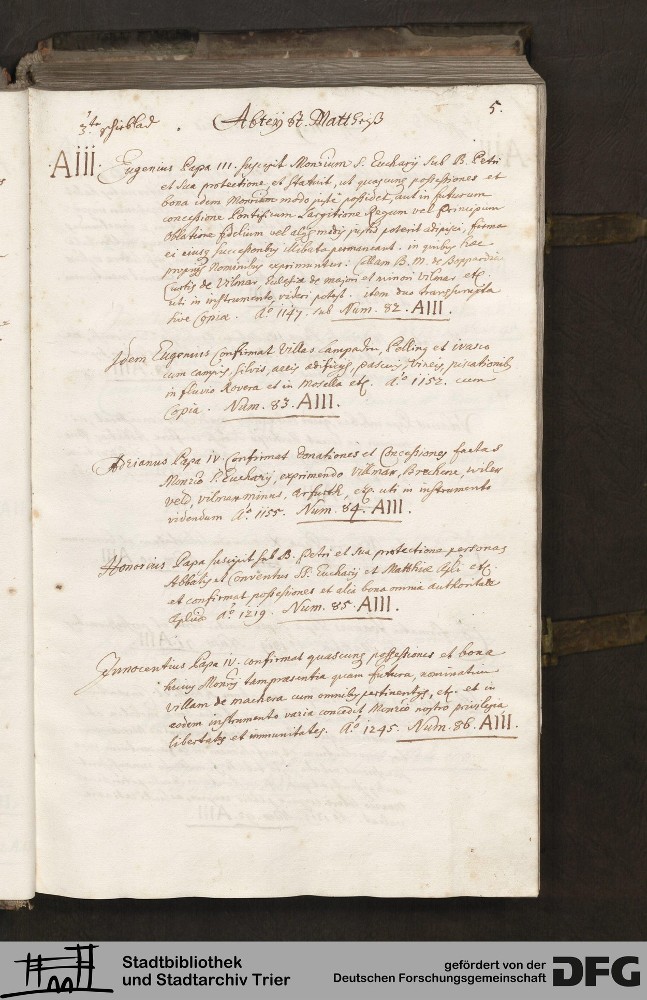 5.
3te schieblad . Abteÿ St. Matthiß
AIII. Eugenius Papa III. suscepit Monrium S. Eucharÿ sub B. Petri
et sua protectione et statuit, ut quascunq possessiones et
bona idem Monrium modo juste possidet, aut in futurum
concessione Pontificum Largitione Regum vel Principum
oblatione fidelium vel alijs modis justis poterit adipisci, firma
ei eiusq successoribus illibata permaneant. in quibus haec
proprijs Nominibus exprimuntur. Cellam B. M. de
Curtis de Vilmar, Ecclesiae de majori et minori Vilmar etc.
uti in instrumento videri potest. item duo transsumpta
sive Copia. Aô 1147. sub Num. 82. AIII.
Idem Eugenius Confirmat Villas Lampadin, Polling et
cum campis, silvis, areis aedificijs, pascuis, vineis, piscationib
in fluvio Rovera et in Mosella etc. Aô 1152. cum
Copia. Num. 83. AIII.
Adrianus Papa IV. Confirmat donationes et Concessiones factas
Monrio S. Eucharÿ, exprimendo Villmar, Brechene, wiler
veld, vilmar minus, arfurth, etc. uti in instrumento
videndum Aô 1155. Num. 84. AIII.
Honorius Papa suscipit sub B. Petri et sua protectione personas
Abbatis et Conventus SS. Eucharÿ et Matthiae Apli etc.
et confirmat possessiones et alia bona omnia authoritate
Aplica aô 1219. Num. 85. AIII.
Innocentius Papa IV. confirmat quascunq possessiones et bona
huius Monrÿ tam praesentia quam futura, nominatim
villam de machera cum omnibus pertinentijs, etc. et in
eodem instrumento varia concedit Monrio nostro privilegia
libertates et immunitates. Aô 1245. Num. 86. AIII.
Stadtbibliothek
und Stadtarchiv Trier
gefördert von der
Deutschen Forschungsgemeinschaft
DFG